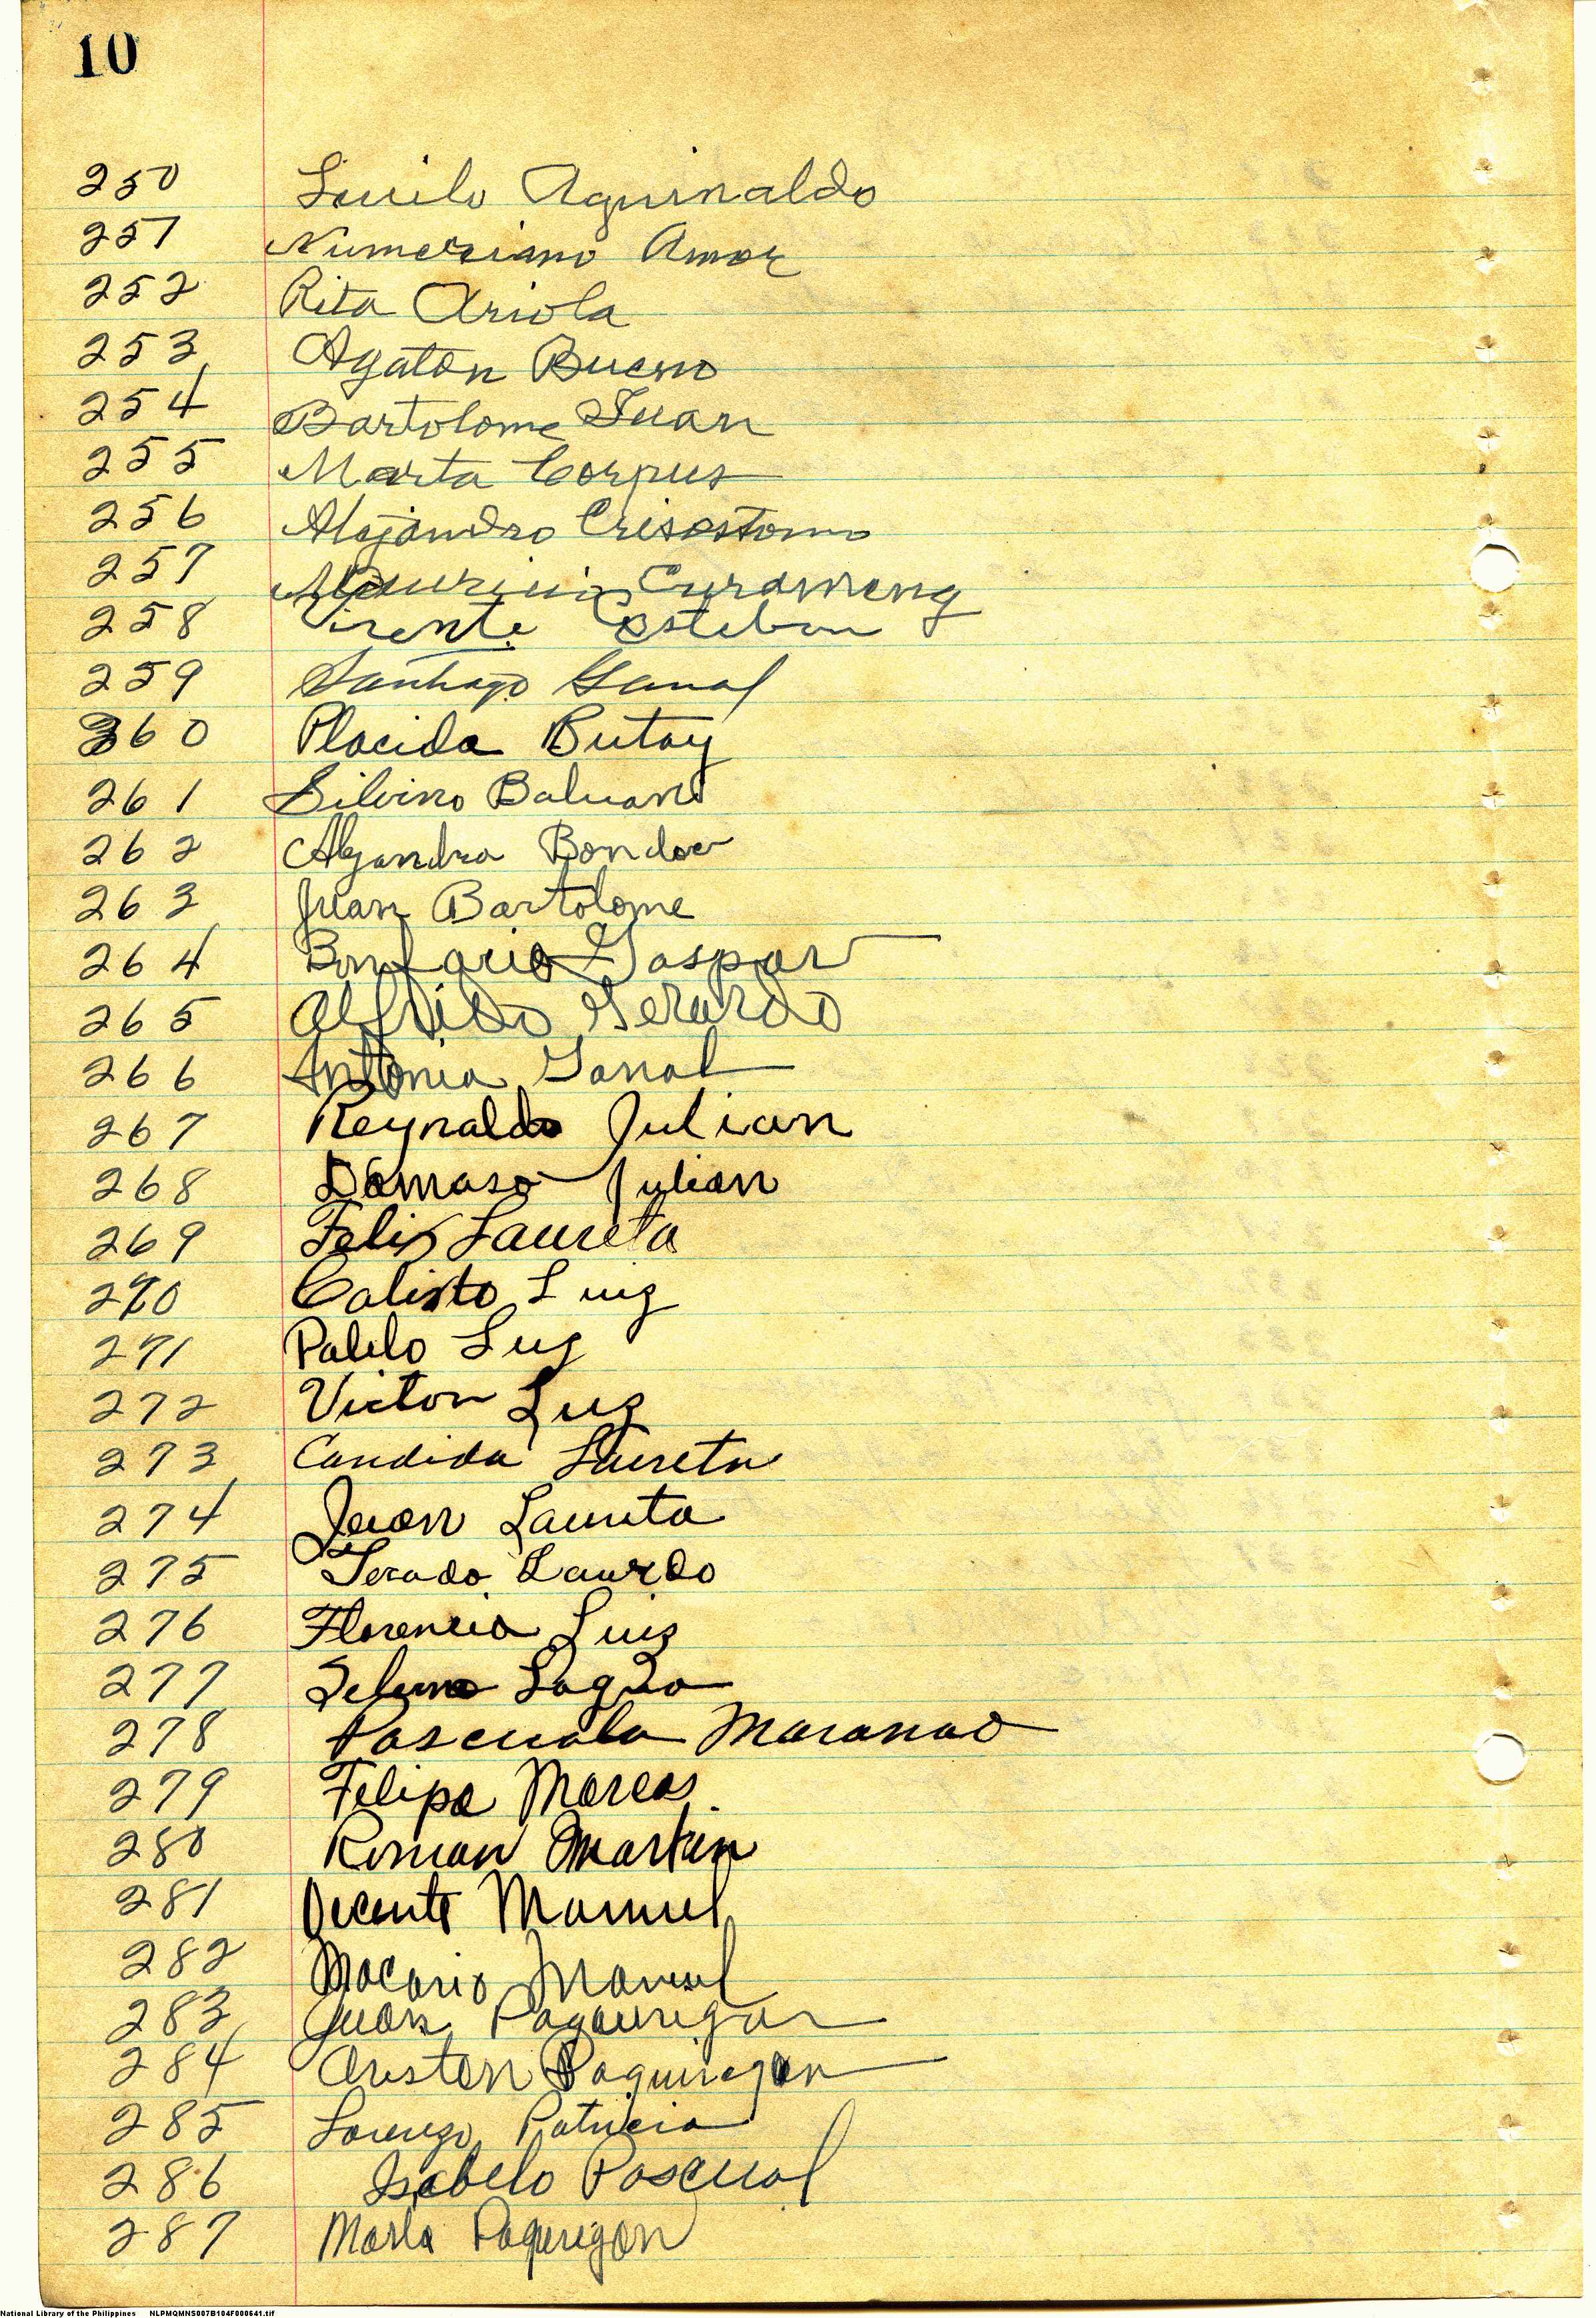 10
250 Lucilo Aguinaldo
251 Numeriano Amor
252 Rita Ariola
253 Agaton Bueno
254 Bartolome Juan
255 Marta Corpus
256 Alejandro Crisostomo
257 Curameng
258 Vicente Esteban
259 Santiago Ganal
260 Placida Butay
261 Silvino Baluan
262 Alejandra Bondoc
263 Juan Bartolome
264 Bonifacio Gaspar
265 Alfredo Gerardo
266 Antonia Ganal
267 Reynaldo Julian
268 Damaso Julian
269 Felix Laureta
270 Calixto Luiz
271 Pablo Luz
272 Victor Luz
273 Candida Laureta
274 Juan Laureta
275 Laurdo
276 Florencia Luiz
277
278 Pascuala Maranao
279 Felipa Marcos
280 Roman Martin
281 Vicente Manuel
282 Macario Manuel
283 Juan Pagaurigan
284 Ariston Paguirigan
285 Lorenzo Patricio
286 Isabelo Pascual
287 Marla Pagurigan
National Library of the Philippines NLPMQMNS007B104F000641.tif